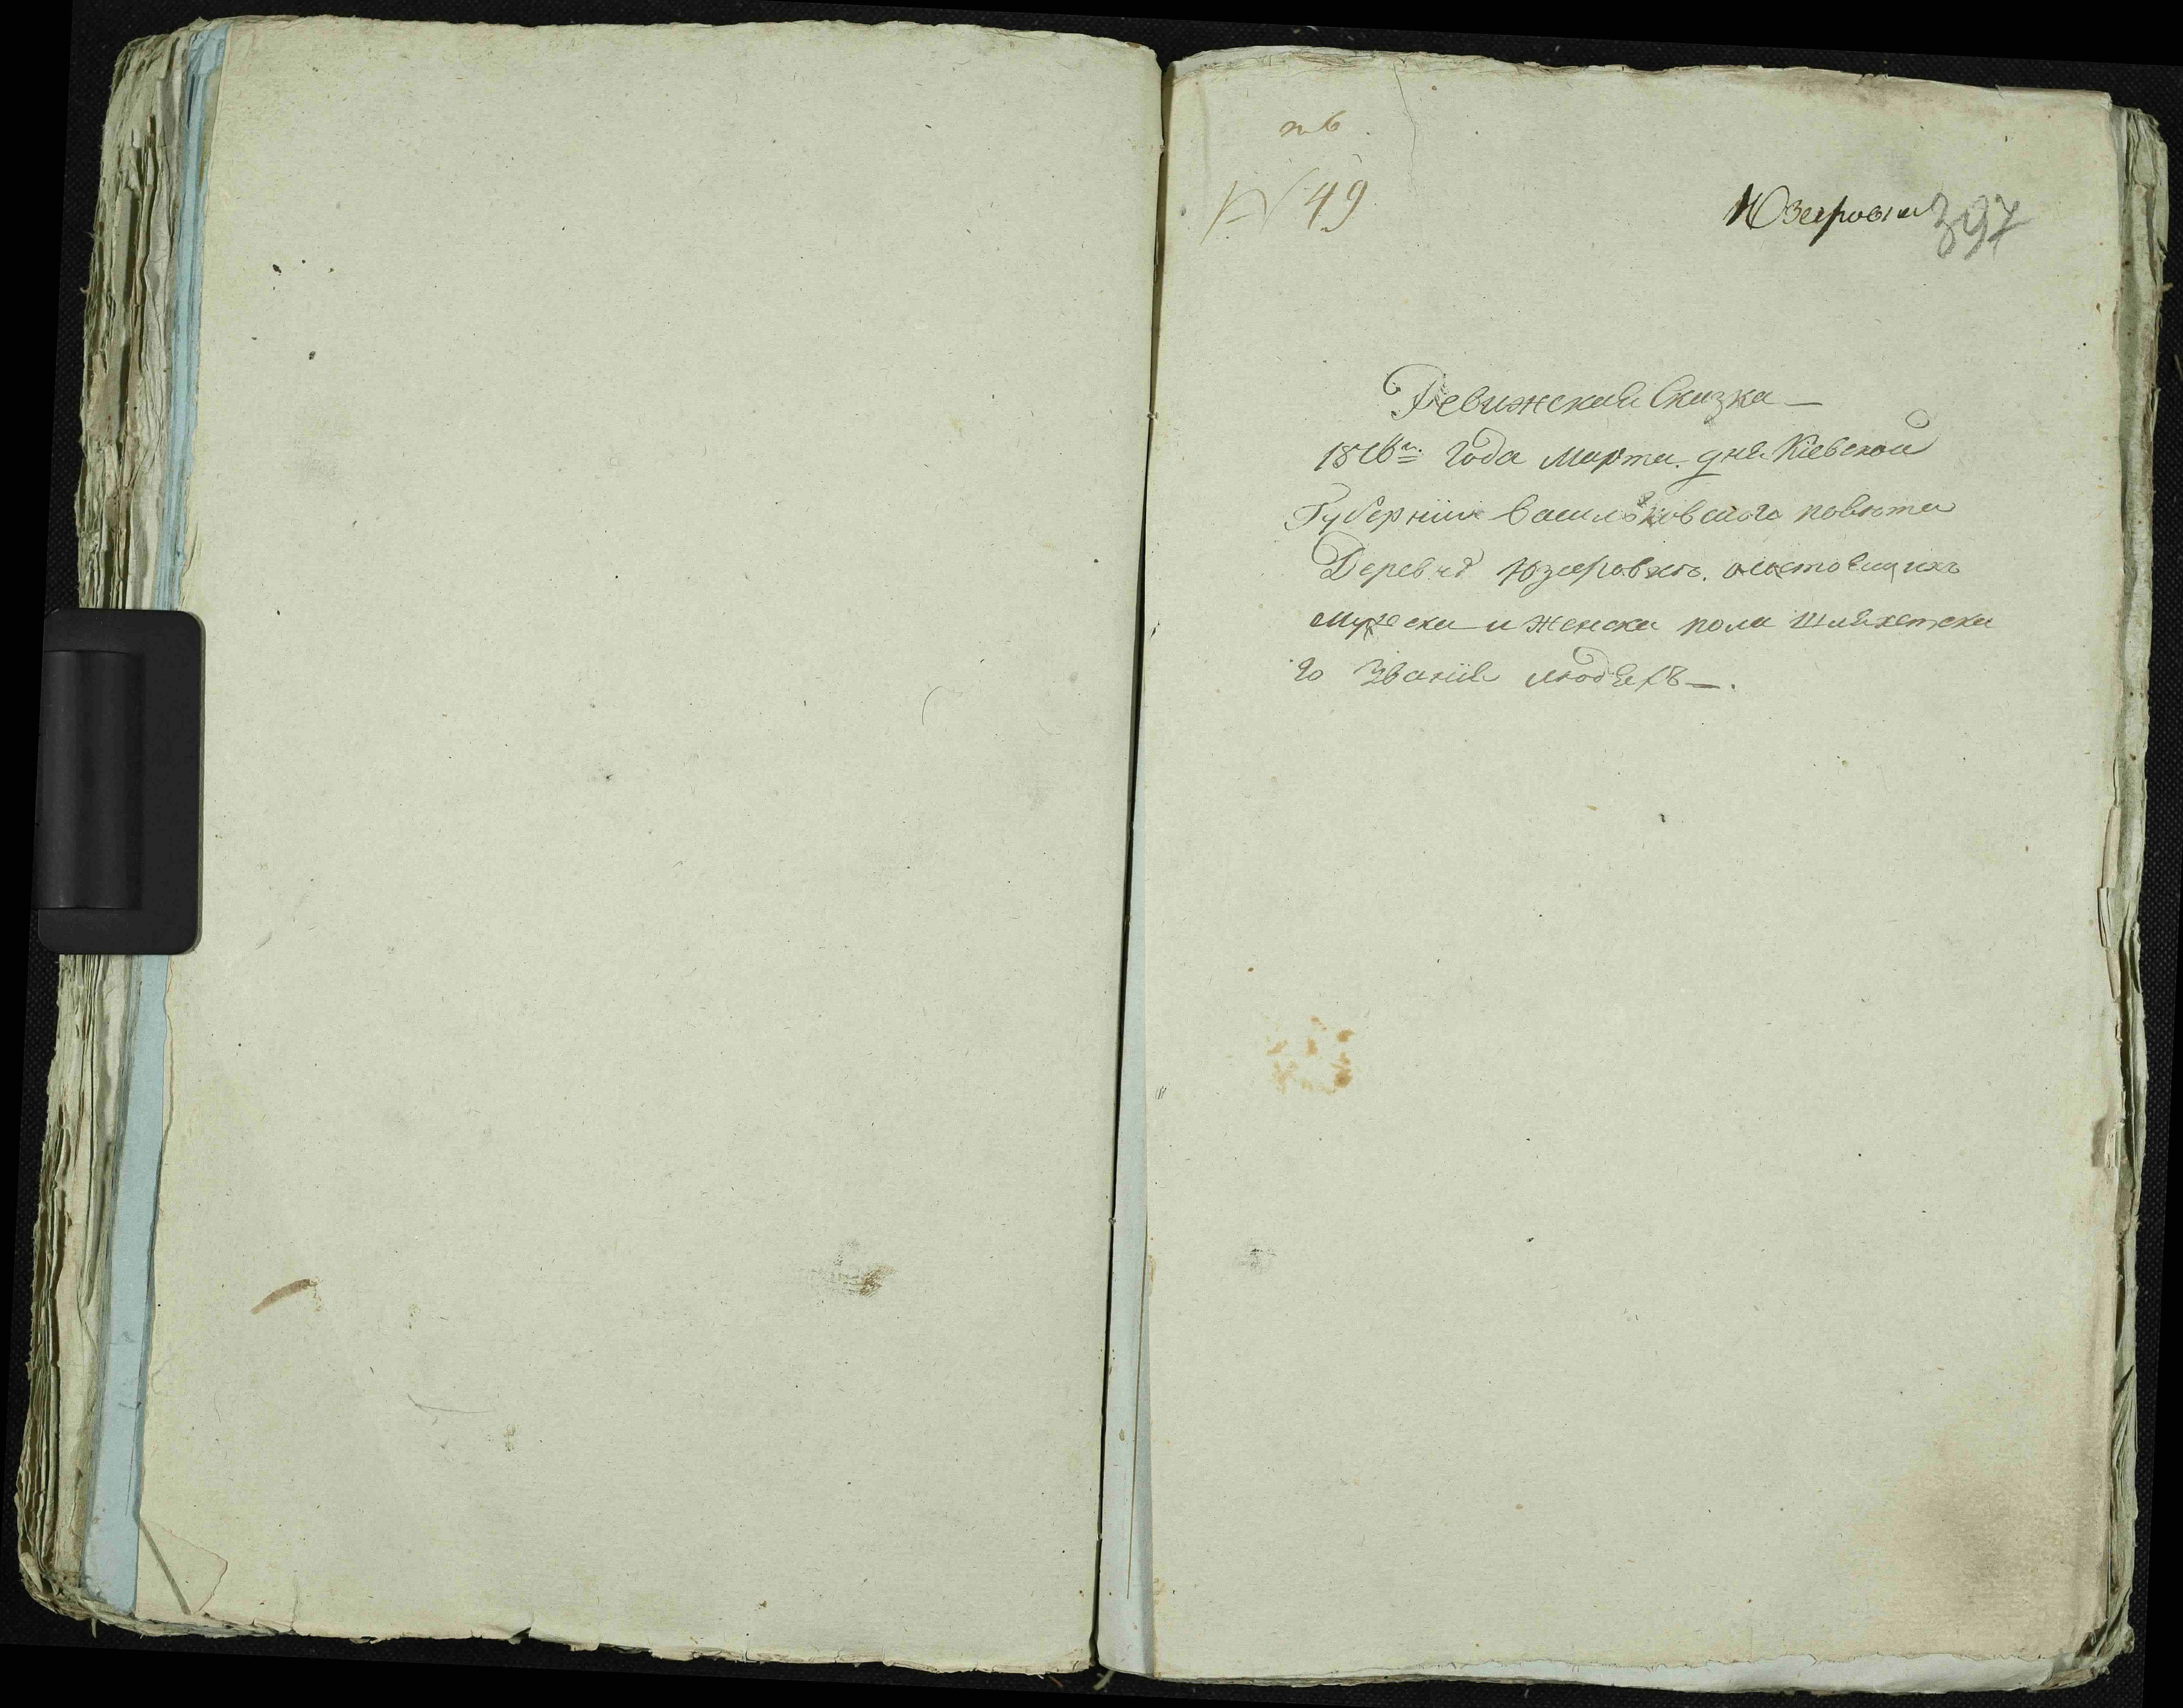 № 49
Юзеровки 397
Ревижская Сказка —
1816го года Марта дня Кіевской
Губерніи Васильковского повѣта
Деревнѣ Юзеровкѣ. о состоящихъ
мужеска и женска пола шляхетска
го Званія людехъ —.